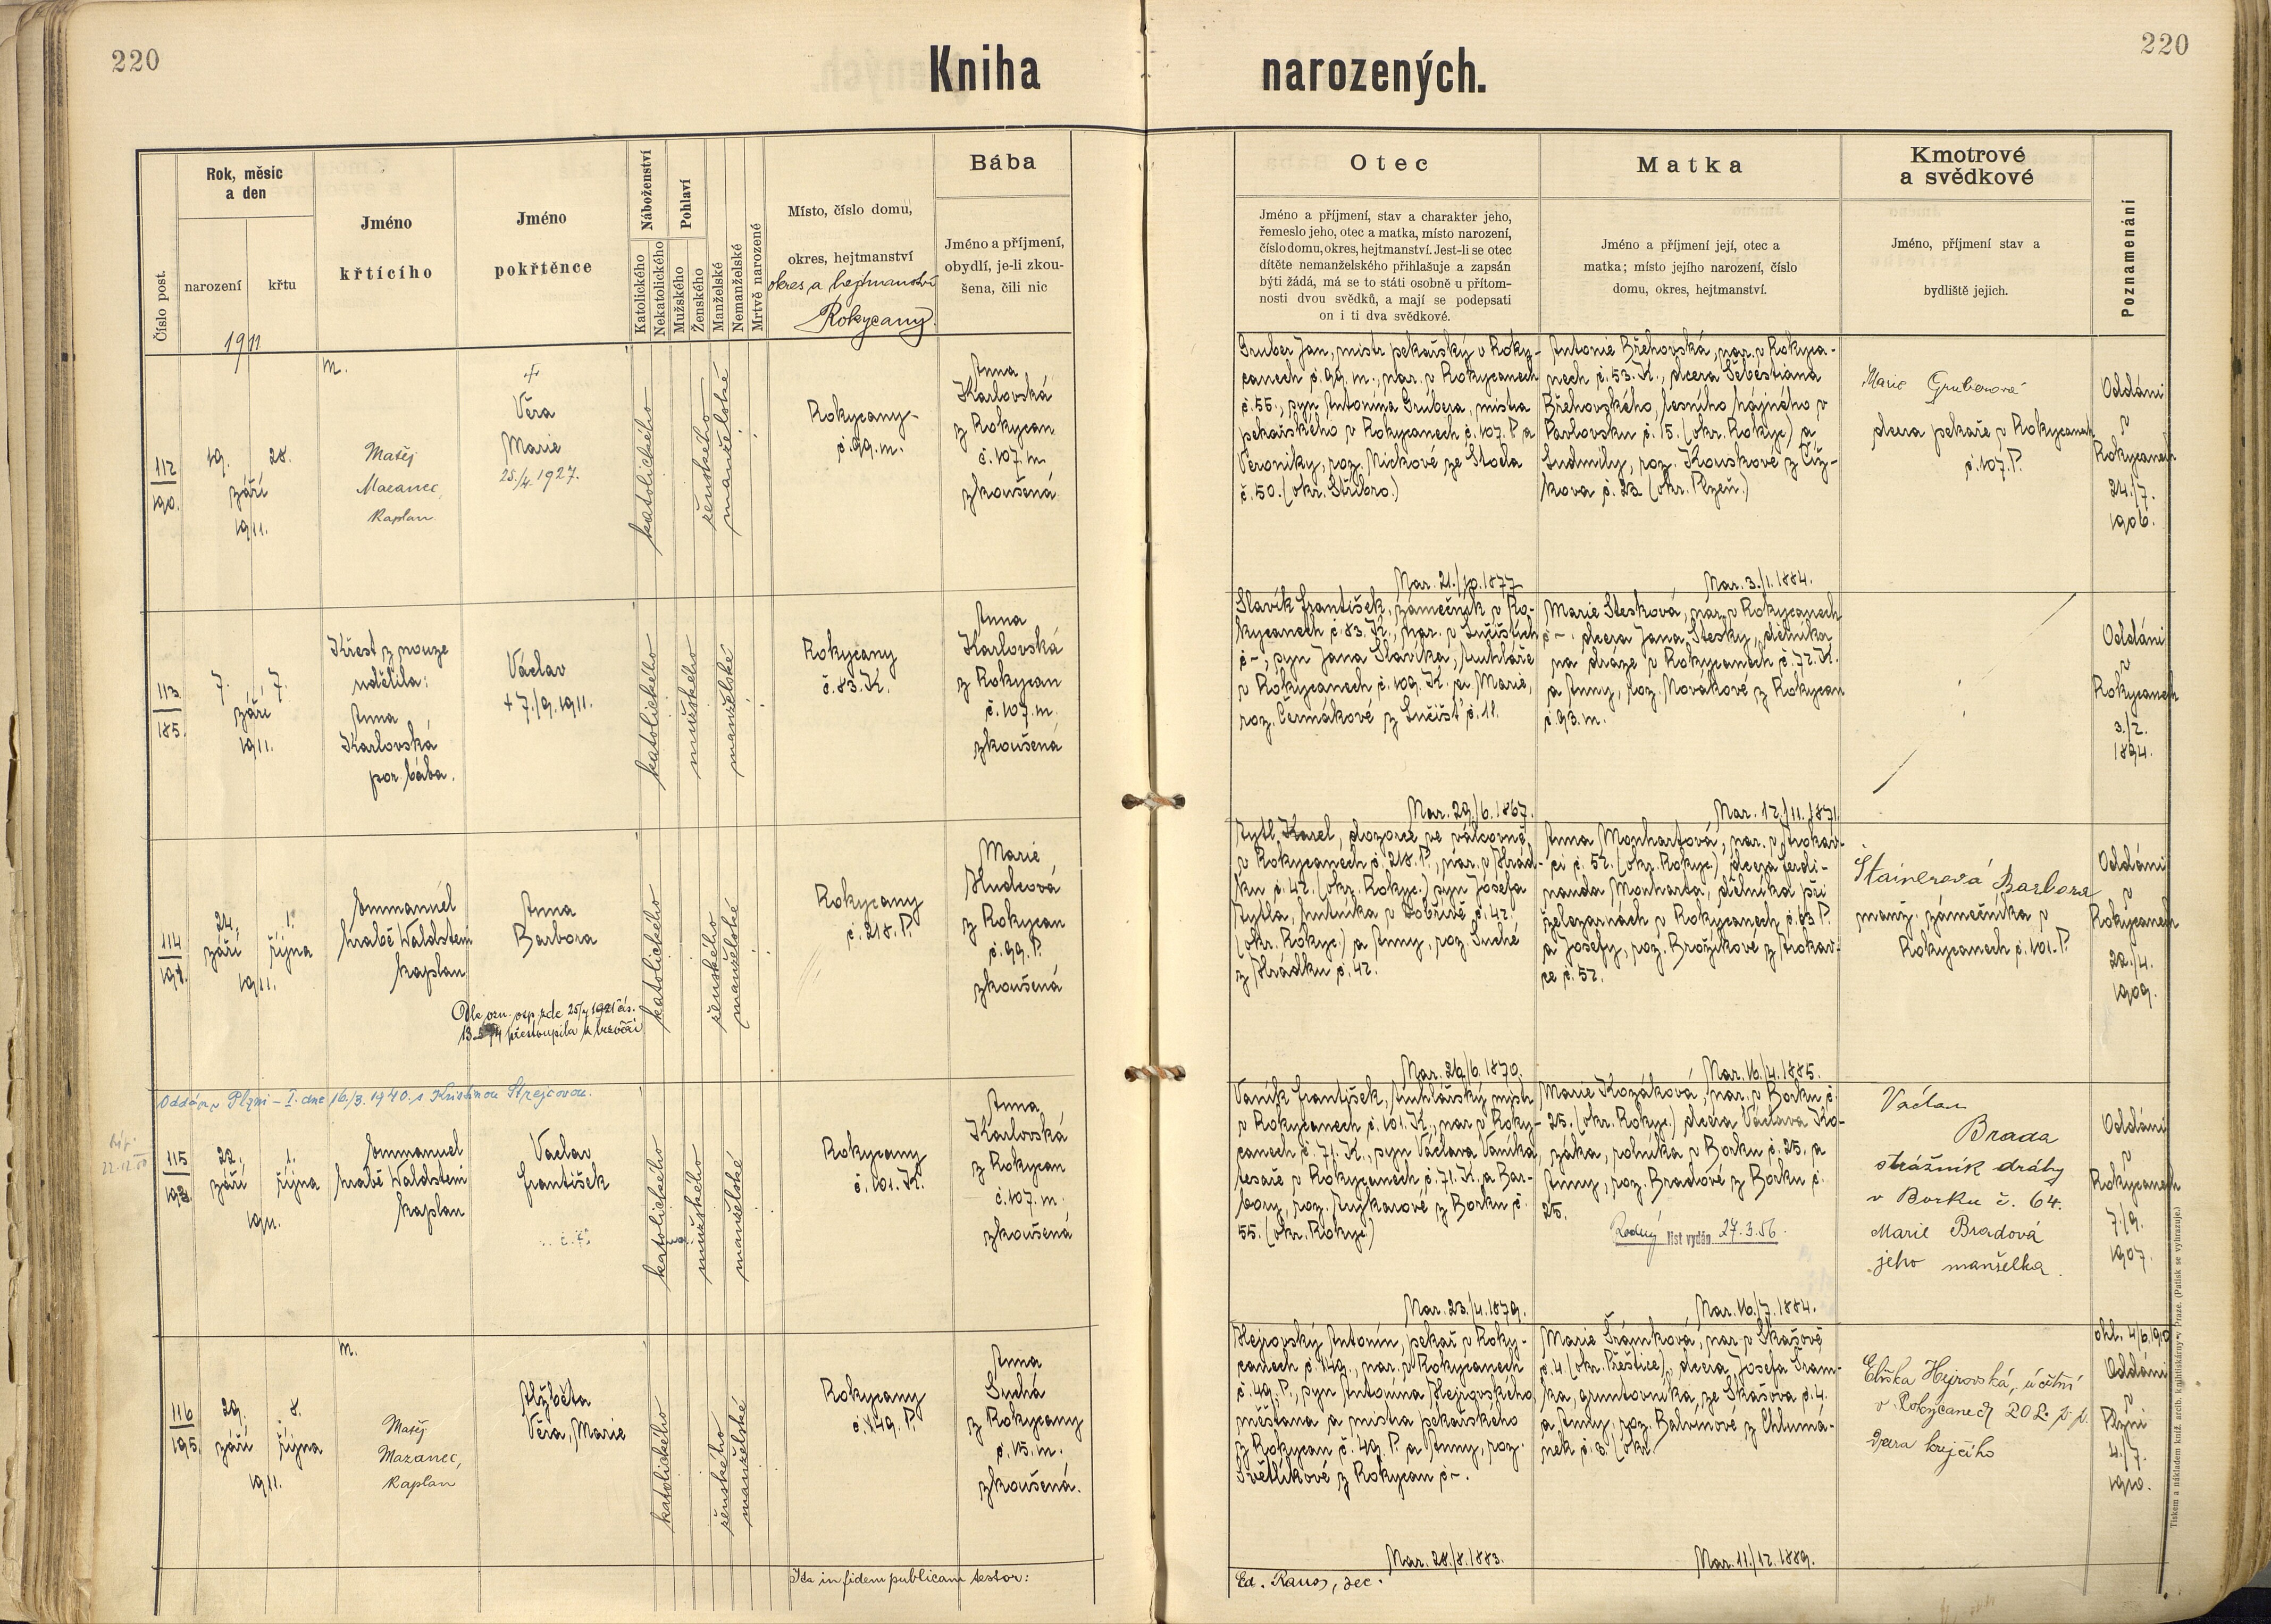 220
220
Kniha
narozených.
Číslo post.
Rok, měsíc
a den
narození
křtu
1911
Jméno
křtícího
Jméno
pokřtěnce
Náboženství
Katolického
Nekatolického
Pohlaví
Mužského
Ženského
Manželské
Nemanželské
Mrtvě narozené
Místo, číslo domu,
okres, hejtmanství
okres a hejtmanství
Rokycany.
Bába
Jméno a příjmení,
obydlí, je-li zkou-
šena, čili nic
Otec
Jméno a příjmení, stav a charakter jeho,
řemeslo jeho, otec a matka, místo narození,
číslo domu, okres, hejtmanství. Jest-li se otec
dítěte nemanželského přihlašuje a zapsán
býti žádá, má se to státi osobně u přítom-
nosti dvou svědků, a mají se podepsati
on i ti dva svědkové.
Matka
Jméno a příjmení její, otec a
matka; místo jejího narození, číslo
domu, okres, hejtmanství.
Kmotrové
a svědkové
Jméno, příjmení stav a
bydliště jejich.
Poznamenání
112
190.
19.
28.
září
1911.
m.
Matěj
Mazanec,
Kaplan.
+
Věra
Marie
25./4. 1927.
katolického
ženského
manželské
Rokycany
č. 99. m.
Anna
Karlovská
z Rokycan
č. 107. m.
zkoušená
Gruber Jan, mistr pekařský v Roky-
canech č. 99. m., nar. v Rokycanech
č. 55., syn Antonína Grubera, mistra
pekařského v Rokycanech č. 107. P. a
Veroniky, roz. Mickové ze Stoda
č. 50. (okr. Stříbro.)
Nar. 21./10. 1877
Antonie Břehovská, nar. v Rokyca-
nech č. 53. K., dcera Šebestiána
Břehovského, lesního hájného v
Pavlovsku č. 15. (okr. Rokyc) a
Ludmily, roz. Kouskové z Číž-
kova č. 23. (okr. Plzeň.)
Nar. 3./1. 1884.
Marie Gruberová
dcera pekaře v Rokycanech
č. 107. P.
Oddáni
v
Rokycanech
24./7.
1906.
113
185.
7.
7.
září
1911.
Křest z nouze
udělila:
Anna
Karlovská
por. bába.
Václav
+ 7./9. 1911.
katolického
mužského
manželské
Rokycany
č. 83. K.
Anna
Karlovská
z Rokycan
č. 107. m.
zkoušená
Slavík František, zámečník v Ro-
kycanech č. 83. K., nar. v Lučištích
č -, syn Jana Slavíka, truhláře
v Rokycanech č. 109. K. a Marie,
roz. Čermákové z Lučišť č. 11.
Nar. 29./6. 1867.
Marie Stesková, nar. v Rokycanech
č - dcera Jana Stesky, dělníka
na dráze v Rokycanech č. 72. K.
a Anny, roz. Novákové z Rokycan
č. 93. m.
Nar. 12./11. 1871.
Oddáni
v
Rokycanech
3./2.
1894.
114
24.
1.
září
října
1911.
Emmanuel
hrabě Waldstein
kaplan
Anna
Barbora
katolického
ženského
manželské
Rokycany
č. 218. P.
Marie
Hudcová
z Rokycan
č. 99. P.
zkoušená
Rytl Karel, dozorce ve válcovně
v Rokycanech č. 218. P., nar. v Hrád-
ku č. 42. (okr. Rokyc.) syn Josefa
Rytla, hutníka v Dobřívě č. 42.
(okr. Rokyc) a Anny, roz. Suché
z Hrádku č. 42.
Nar. 26./6. 1870.
Anna Monhartová, nar. v Mokrov-
ci č. 52. (okr. Rokyc) dcera Ferdi-
nanda Monharta, dělníka při
železárnách v Rokycanech č. 63 P.
a Josefy, roz. Brožíkové z
č. 52.
Nar. 16./4. 1885.
Štainerová Barbora
manž. zámečníka v
Rokycanech č. 101. P.
Oddáni
v
Rokycanech
22./4.
1909.
Oddán v Plzni - I. dne 16./3. 1940. s Kristinou Strejcovou.
115
22.
1.
září
října
1911.
Emmanuel
hrabě Waldstein
kaplan
Václav
František
katolického
mužského
manželské
Rokycany
č. 101. K.
Anna
Karlovská
z Rokycan
č. 107. m.
zkoušená
Vaník František, truhlářský mistr
v Rokycanech č. 101. K., nar. v Roky-
canech č. 71. K., syn Václava Vaníka,
tesaře v Rokycanech č. 71. K. a Bar-
bory, roz. z Borku č.
55. (okr. Rokyc)
Nar. 23./4. 1879.
Marie Kozáková, nar. v Borku č.
25. (okr. Rokyc.) dcera Václava Ko-
záka, rolníka v Borku č. 25. a
Anny, roz. Bradové z Borku č.
25.
Rodný list vydán 27.3.56.
Nar. 16./7. 1884.
Václav
Brada
strážník dráhy
v Borku č. 64.
Marie Bradová
jeho manželka.
Oddáni
v
Rokycanech
7./9.
1907.
116
195.
29.
září
října
1911.
m.
Matěj
Mazanec,
Kaplan
Alžběta
Věra, Marie
katolického
ženského
manželské
Rokycany
č. 149. P.
Anna
Suchá
z Rokycany
č. 15. m.
zkoušená.
Hejrovský Antonín, pekař v Roky-
canech č. 149., nar. v Rokycanech
č. 49. P., syn Antonína Hejrovského,
měšťana a mistra pekařského
z Rokycan č. 49. P. a Anny, roz.
Světlíkové z Rokycan č -.
Nar. 28./8. 1883.
Marie Šrámková, nar. v Skašově
č. 4. (okr. Přeštice), dcera Josefa Šrám-
ka, gruntovníka, ze Skašova č. 4.
a Anny, roz. Balvínové z Chlumá-
nek č. 3. (okr.
Nar. 11./12. 1889.
Eliška Hejrovská, účetní
v Rokycanech
dcera krejčího
ohl. 4/6 1910
Oddáni
v
Plzni
4./7.
1910.
Ita in fidem publicam testor:
Ed. Raus, dec.
Tiskem a nákladem kníž. arcib. knihtiskárny v Praze. (Patisk se vyhrazuje.)